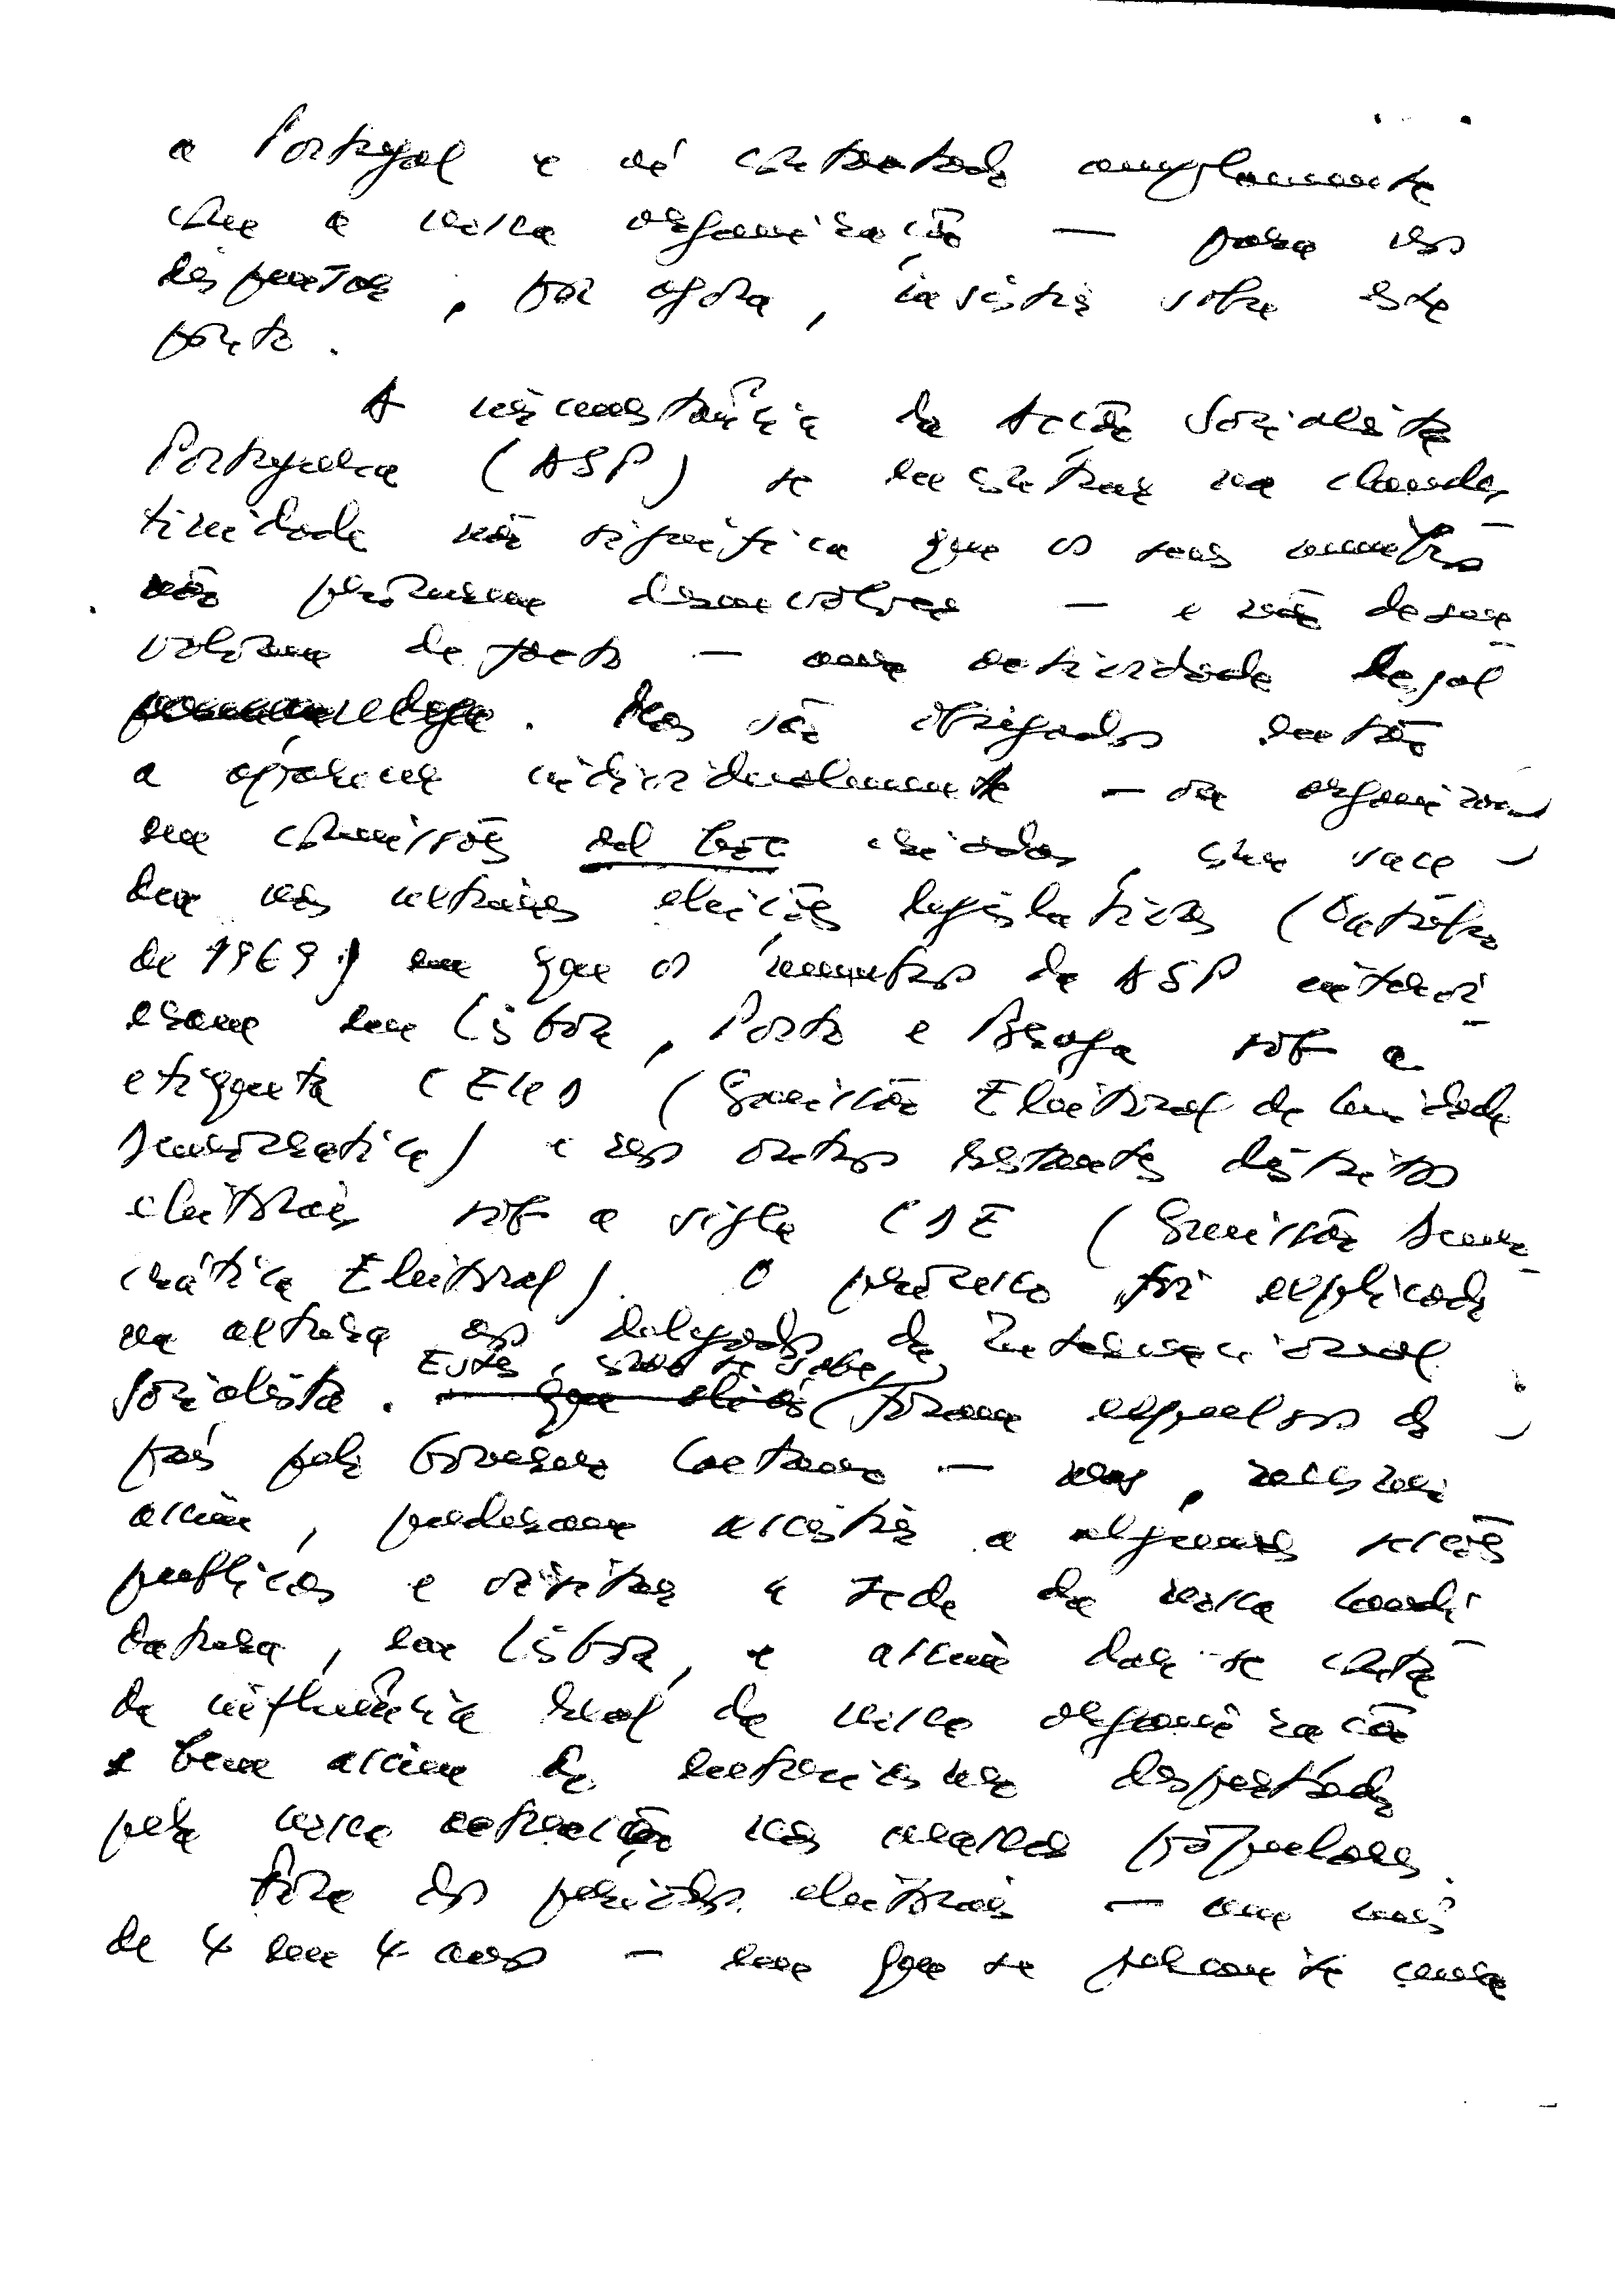 a Portugal e aí contactado amplamente
com a nossa organização — para nos
dispensar, por agora, insistir sobre este
ponto.
A circunstância da Acção Socialista
Portuguesa (ASP) se encontrar na clandes-
tinidade não significa que os seus membros
não procurem desenvolver — e não desen-
volvam de facto — uma actividade legal
. Mas são obrigados então
a aparecer individualmente — ou organizam
em comissões ad hoc criadas, como suce-
deu nas últimas eleições legislativas (Outubro
de 1969) em que os membros da ASP intervi-
eram em Lisboa, Porto e Braga sob a
etiqueta CEUD (Comissão Eleitoral de Unidade
Democrática) e nos outros restantes distritos
eleitorais sob a sigla CDE (Comissão Demo-
crática Eleitoral). O processo foi explicado
na altura aos delegados da Internacional
Socialista. Estes, como se sabe,
que aliás foram expulsos do
país pelo Governo Caetano — mas, mesmo
assim, puderam assistir a algumas sessões
públicas e visitar a sede da nossa candi-
datura, em Lisboa, e assim dar-se conta
da influência real da nossa organização
e bem assim do entusiasmo despertado
pela nossa actuação nas massas populares.
Fora dos períodos eleitorais — um mês
de 4 em 4 anos — em que se permite uma